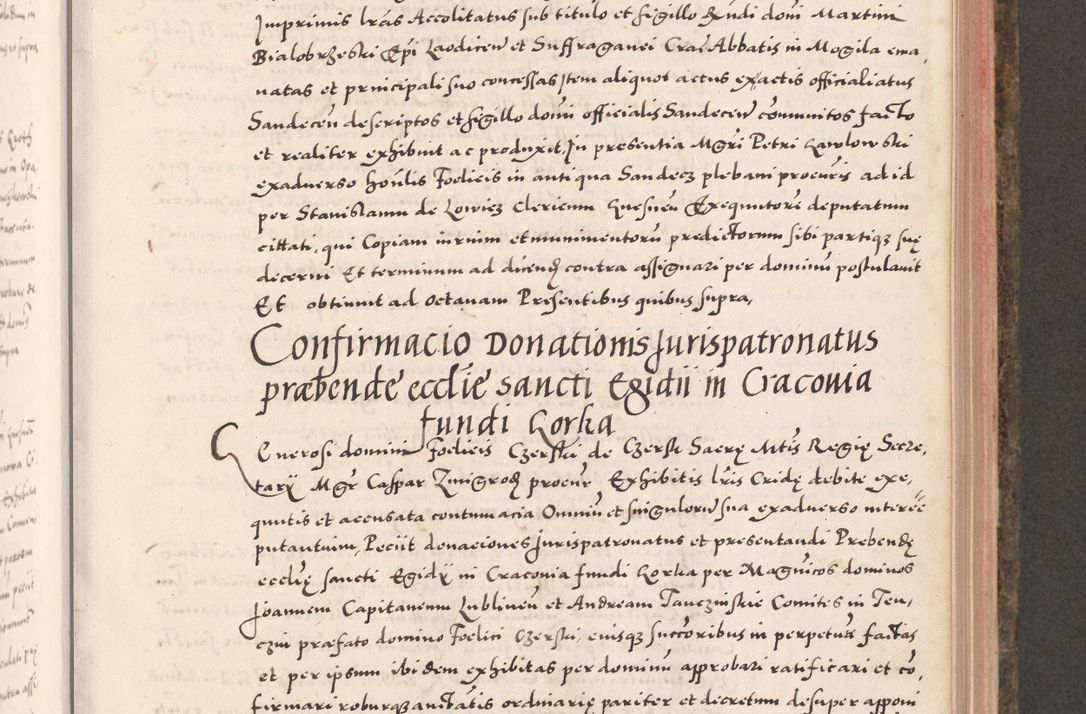 Imprimis lr̃as Accolitatus sub titulo et sigillo R̃ndi dōni Martini
Bialobrzeski Ep̃i Laodicen̄ et Suffraganei Crac̄ Abbatis in Mogila ema,
natas et principali suo concessas Item aliquot actus ex actis officialiatus
Sandecen̄ descriptos et sigillo dōni officialis Sandecen̄ cōmunitos facto
et realiter exhibuit ac produxit, In presentia Mgr̄i Petri Gawlowski
exaduerso hon̄lis Foelicis in antiqua Sandecz plebani procūris ad id
per Stanislaum de Lowicz Clericum Gnesnen̄ Exequutorē deputatum
cittati, qui Copiam iurium et munimentorū predictorum sibi partiq; suę
decerni Et terminum ad dicend contra assignari per dominū postulauit
Et obtinuit ad octauam Presentibus quibus supra,
Confirmacio Donationis Jurispatronatus
præbende ecclie sancti Egidii in Cracouia
fundi Gorka
Generosi domini Foelicis Czerski de Czersk Sacrę Mtis Regię Secre,
tarij Mgr̄ Caspar Zmigrod procur̄ Exhibitis lr̄is Cridę debite exe,
quutis et accusata contumacia Omniū et singulorū sua exaduerso interēe
putantium, Peciit donaciones Jurispatronatus et presentandi Prebendę
eccl̄ię sancti Egidij in Craconia fundi Gorka per Magnīcos dominos
Joannem Capitaneum Lublinen̄ et Andream Tanczinskie Comites in Ten,
czin præfato domino Foelici Czerski, eiusq; succōribus in perpetuū factas
et per ipsum ibidem exhibitas per dominū approbari ratificari et cō
firmari roburq; auctātis ordinarię pariter et decretum desuper apponi